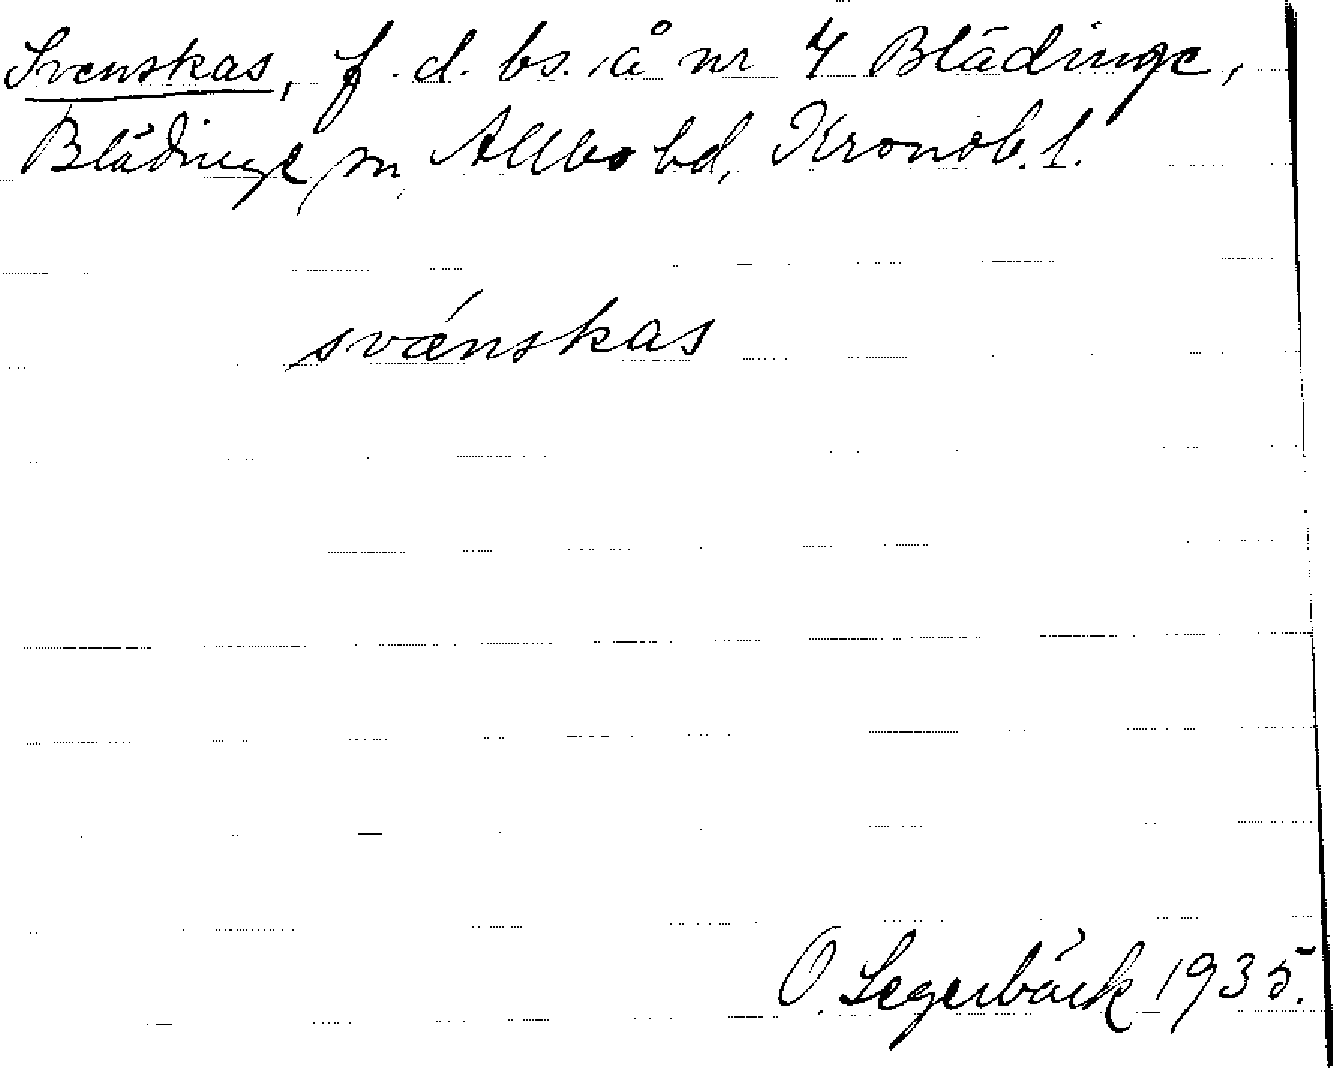 Svenskas, f. d. bs. å nr 4 Blädinge,
Blädinge sn, Allbo hd, Kronob. l.
svǽnskas
O. Segerbäck 1935.